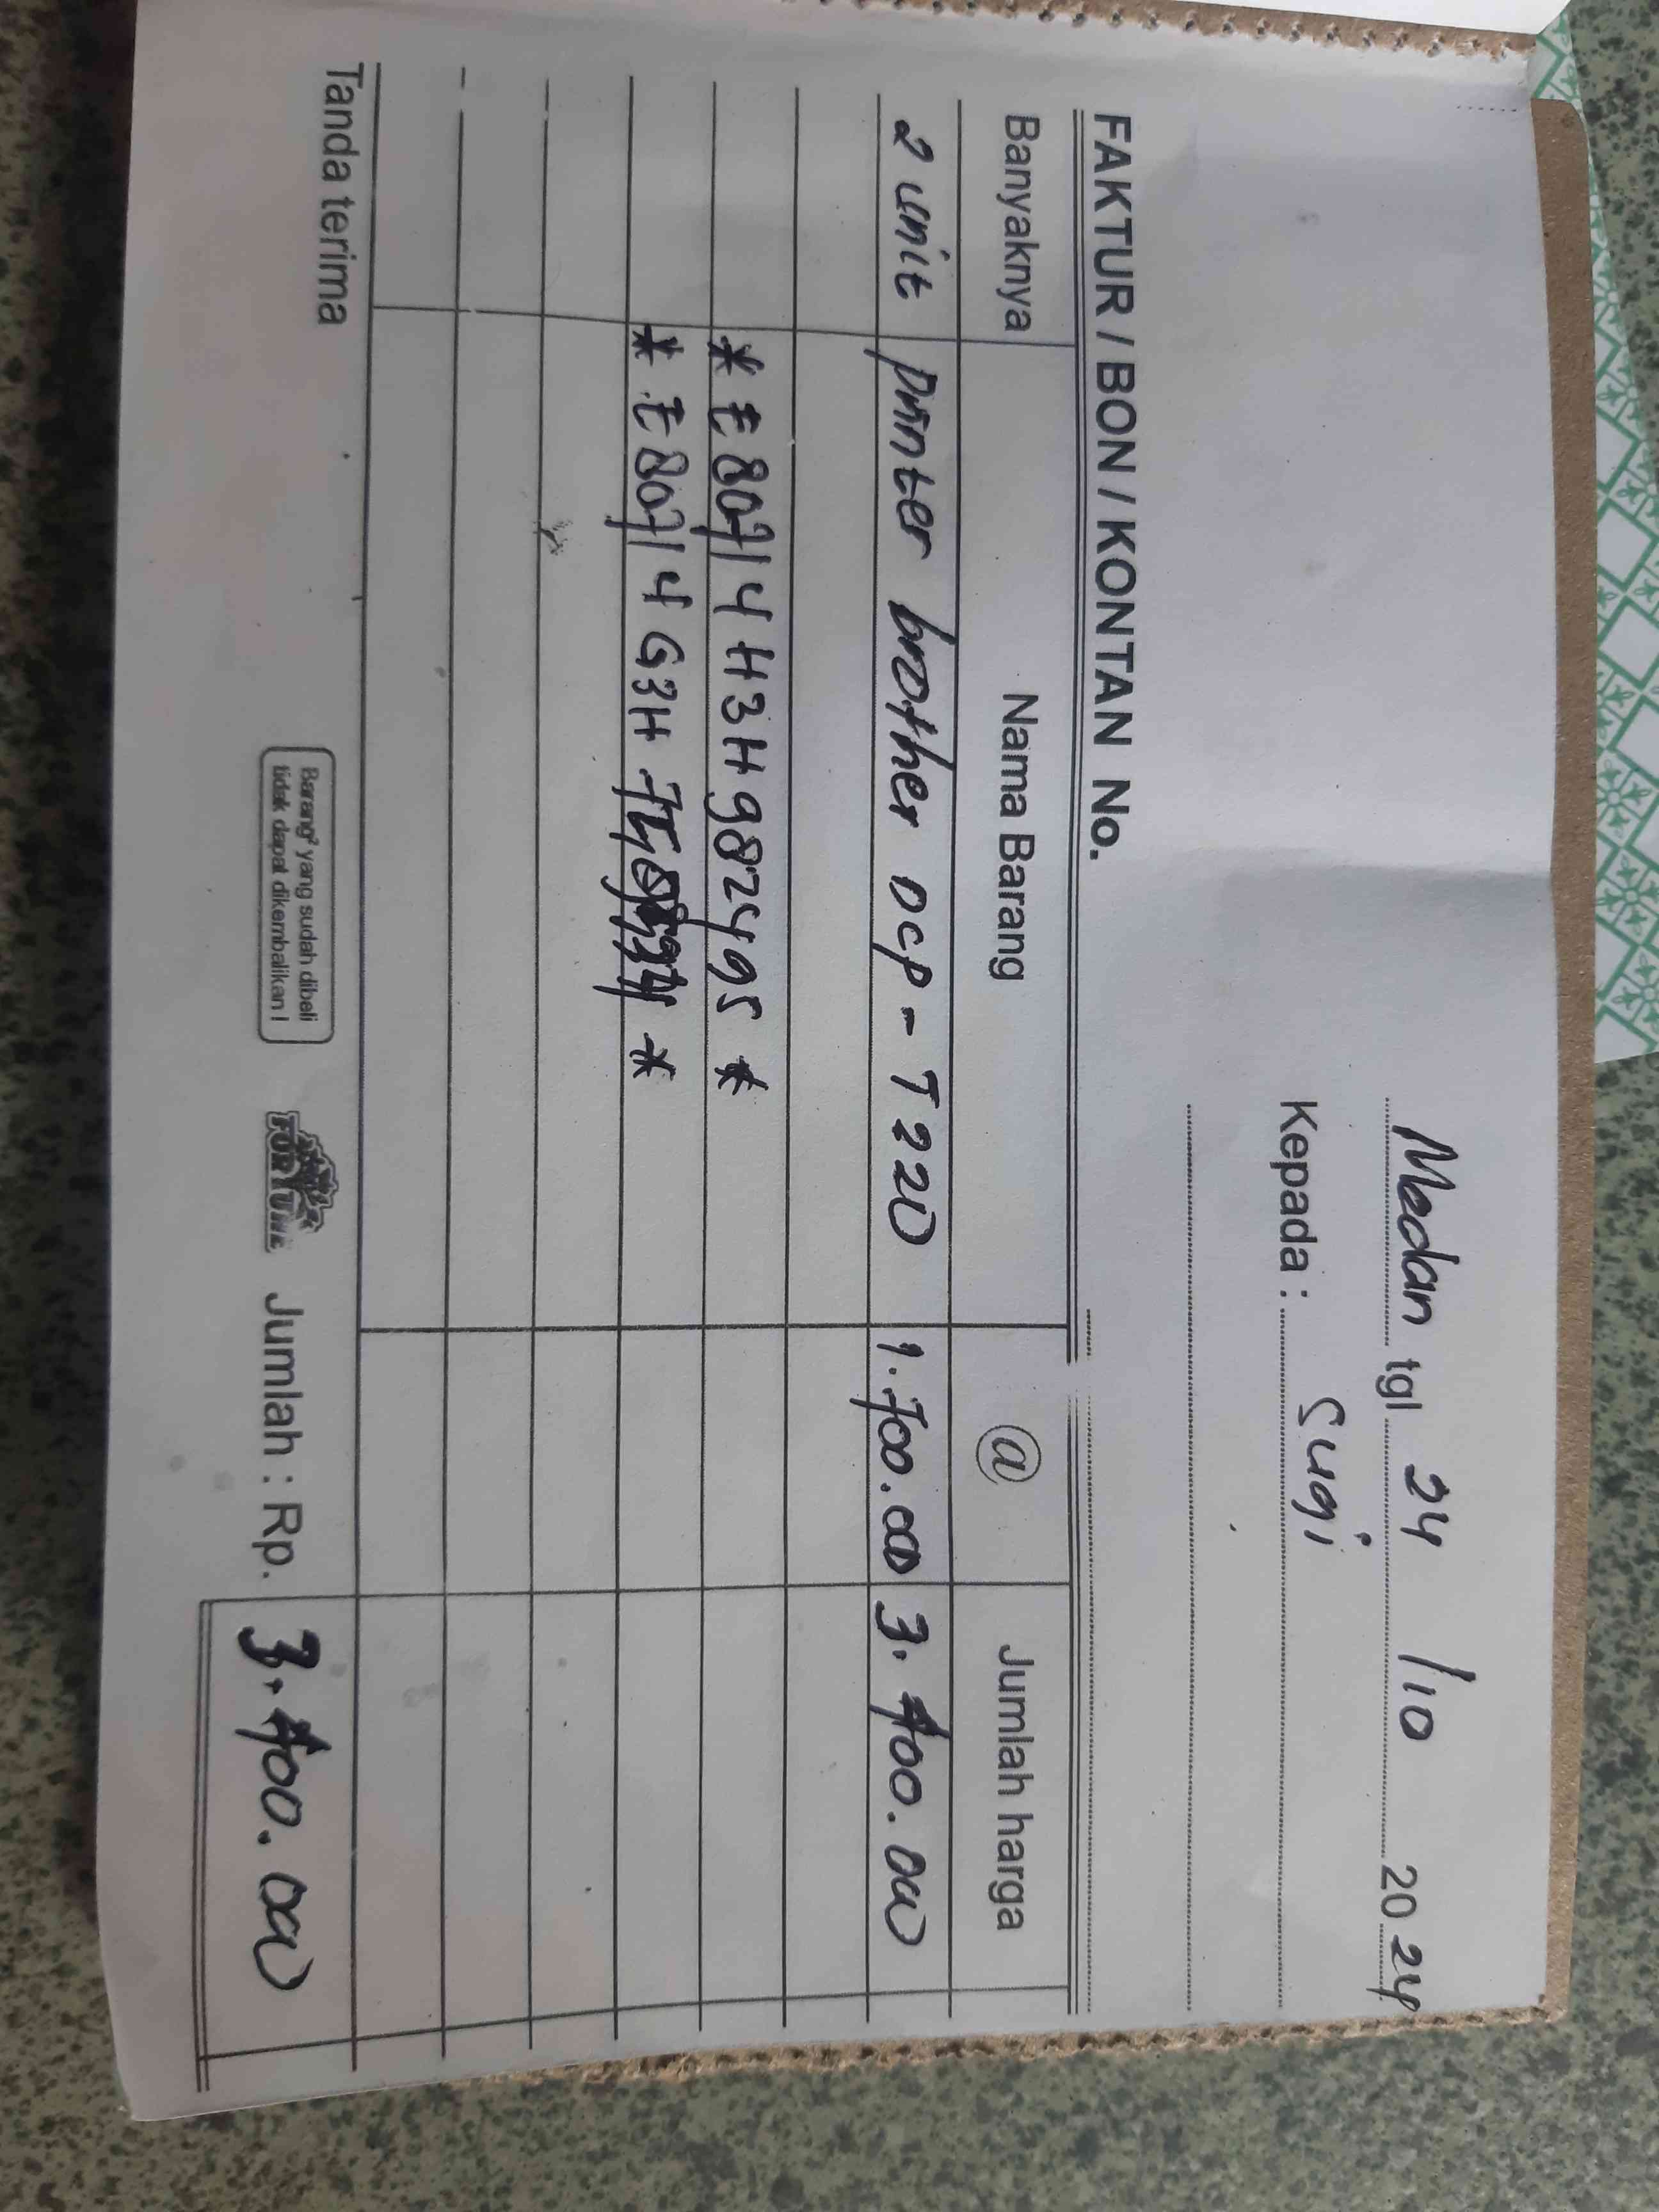 Medan tgl 24 /10 2024
Kepada : Sugi
FAKTUR / BON / KONTAN No.
Banyaknya Nama Barang @ Jumlah harga
2 unit printer brother DCP - T220 1.700.000 3.400.000
* E80714H3H982495 *
* E80714G3H *
Tanda terima
Barang² yang sudah dibeli
tidak dapat dikembalikan !
FORTUNE
Jumlah : Rp. 3.400.000